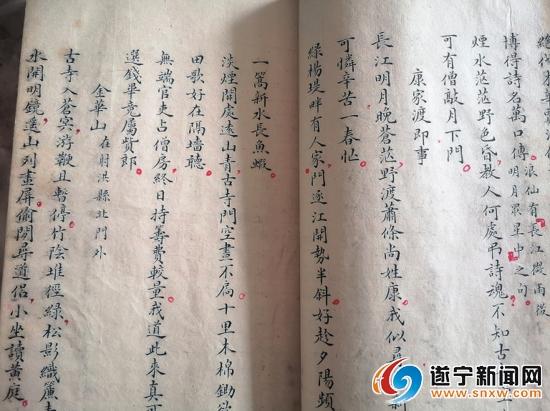 博得詩名萬口傳 浪仙有長江微雨後明月眾星中之句
煙水茫茫野色昏教人何處弔詩魂不知古
可有僧敲月下門
康家渡即事
長江明月晚蒼茫野渡蕭條尚姓康我似
可憐辛苦一春忙
綠楊堤畔有人家門逐江開勢半斜好趁夕陽頻
一篙新水長魚蝦
淡煙開處遠山青古寺門空晝不扃十里木棉鋤欲
田歌好在隔墻聽
無端官吏占僧房終日持籌費較量我道此來真可
選錢畢竟屬貲郎
金華山 在射洪縣北門外
古寺入蒼冥游歡且暫停竹陰堆徑綠松影織簾青
水開明鏡遠山列畫屏偷閒尋道侶小坐讀黃庭
遂宁新闻网
www.snxw.com